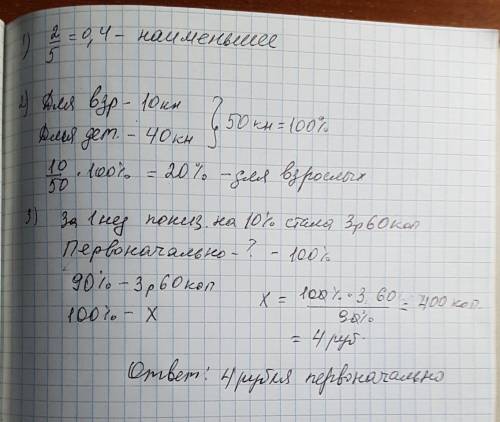 1) 2/5 = 0,4 - наименьшее
2) Для взр - 10 кн
Для дет. - 40 кн } 50 кн = 100%
10/50 · 100% = 20% - для взрослых
3) За 1 нед пониз. на 10% стала 3р 60 коп
Первоначально - ? - 100%
90% - 3р 60 коп
100% - X
X = 100% · 3,60 / 90% = 400 коп.
= 4 руб.
Ответ: 4 рубля первоначально